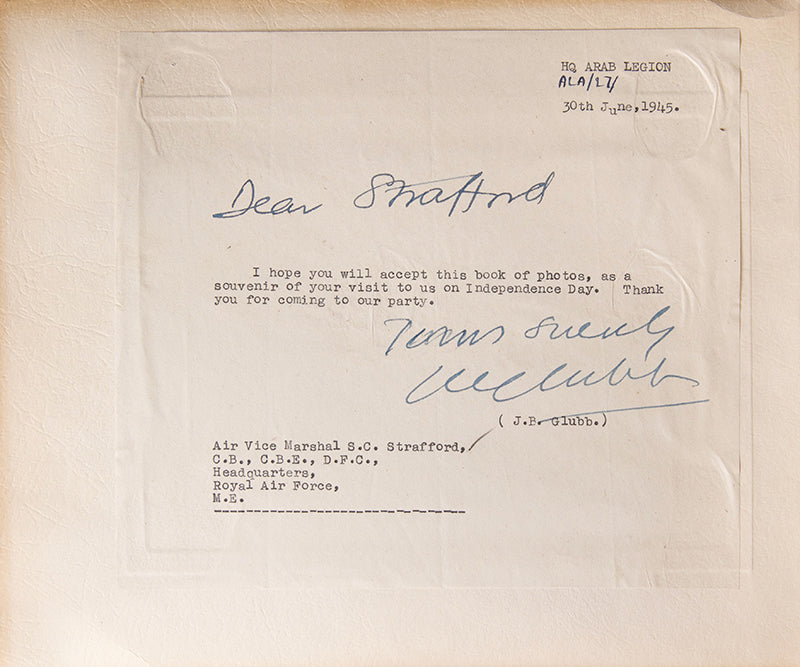 HQ ARAB LEGION
ALA/27/
30th June,1945.
Dear Strafford
I hope you will accept this book of photos, as a
souvenir of your visit to us on Independence Day. Thank
you for coming to our party.
Yours sincerely
JBGlubb
( J.B. Glubb.)
Air Vice Marshal S.C. Strafford,
C.B., C.B.E., D.F.C.,
Headquarters,
Royal Air Force,
M.E.